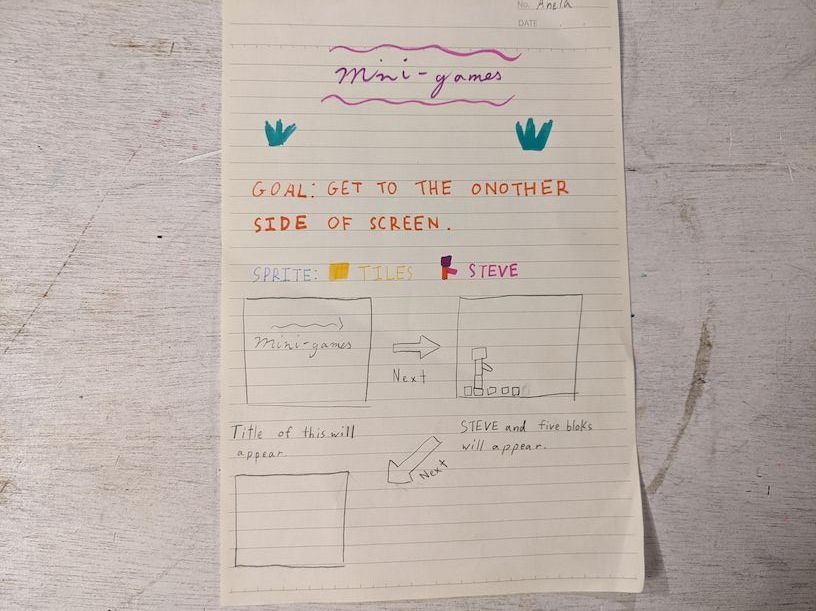 No. Anela
DATE
Mini-games
GOAL: GET TO THE ONOTHER
SIDE OF SCREEN.
SPRITE: TILES STEVE
Mini-games
Next
Title of this will
appear.
STEVE and five bloks
will appear.
Next